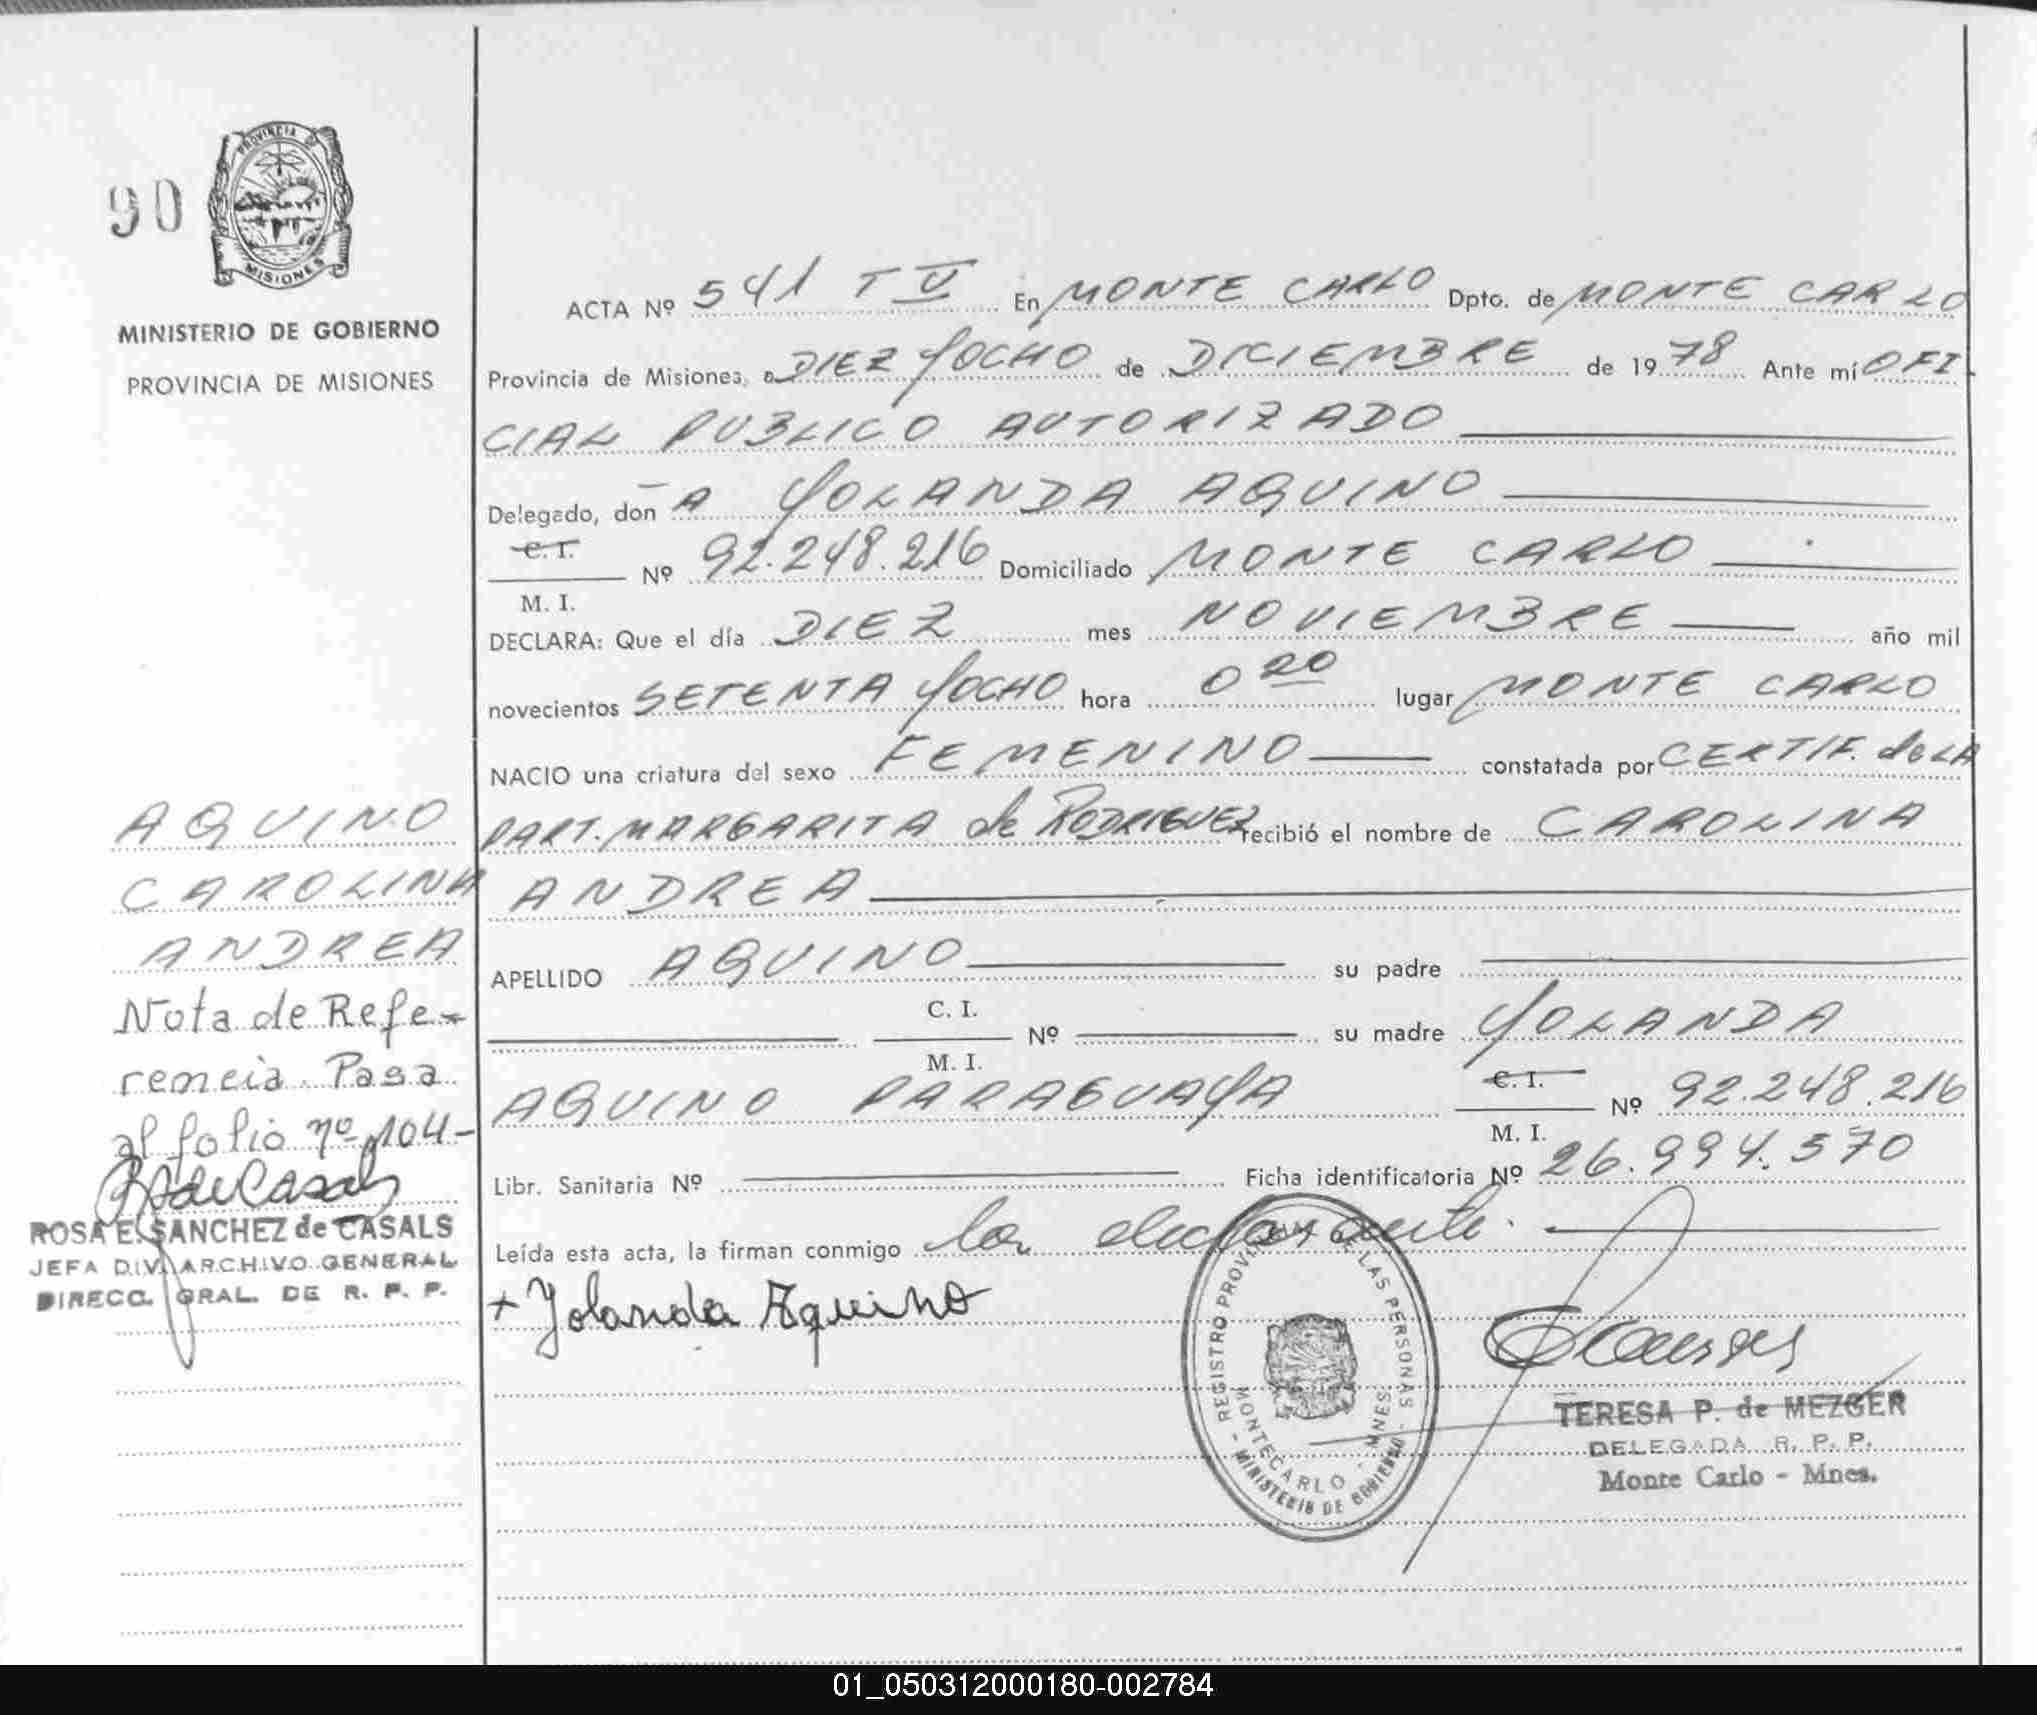 90
PROVINCIA DE
MISIONES
MINISTERIO DE GOBIERNO
PROVINCIA DE MISIONES
ACTA Nº 541 T V En MONTE CARLO Dpto. de MONTE CARLO
Provincia de Misiones, a DIEZ YOCHO de DICIEMBRE de 1978 Ante mí OFI-
CIAL PUBLICO AUTORIZADO
Delegado, don̄A YOLANDA AQUINO
C. I.
Nº 92.248.216 Domiciliado MONTE CARLO
M. I.
DECLARA: Que el día DIEZ mes NOVIEMBRE año mil
novecientos SETENTA YOCHO hora 0 20 lugar MONTE CARLO
NACIO una criatura del sexo FEMENINO constatada por CERTIF. de LA
PART. MARGARITA de RODRIGUEZ recibió el nombre de CAROLINA
ANDREA
APELLIDO AQUINO su padre
C. I.
Nº su madre YOLANDA
M. I.
AQUINO PARAGUAYA C. I. Nº 92.248.216
M. I.
Libr. Sanitaria Nº Ficha identificatoria Nº 26.994.570
Leída esta acta, la firman conmigo la declarante.
+ Yolanda Aquino
AQUINO
CAROLINA
ANDREA
Nota de Refe-
rencia. Pasa
al folio nº 104-
ROSA E. SANCHEZ de CASALS
JEFA DIV. ARCHIVO GENERAL
DIRECC. GRAL. DE R. P. P.
REGISTRO PROVINCIAL DE LAS PERSONAS
MONTECARLO - MNES.
- MINISTERIO DE GOBIERNO -
TERESA P. de MEZGER
DELEGADA R. P. P.
Monte Carlo - Mnes.
01_050312000180-002784